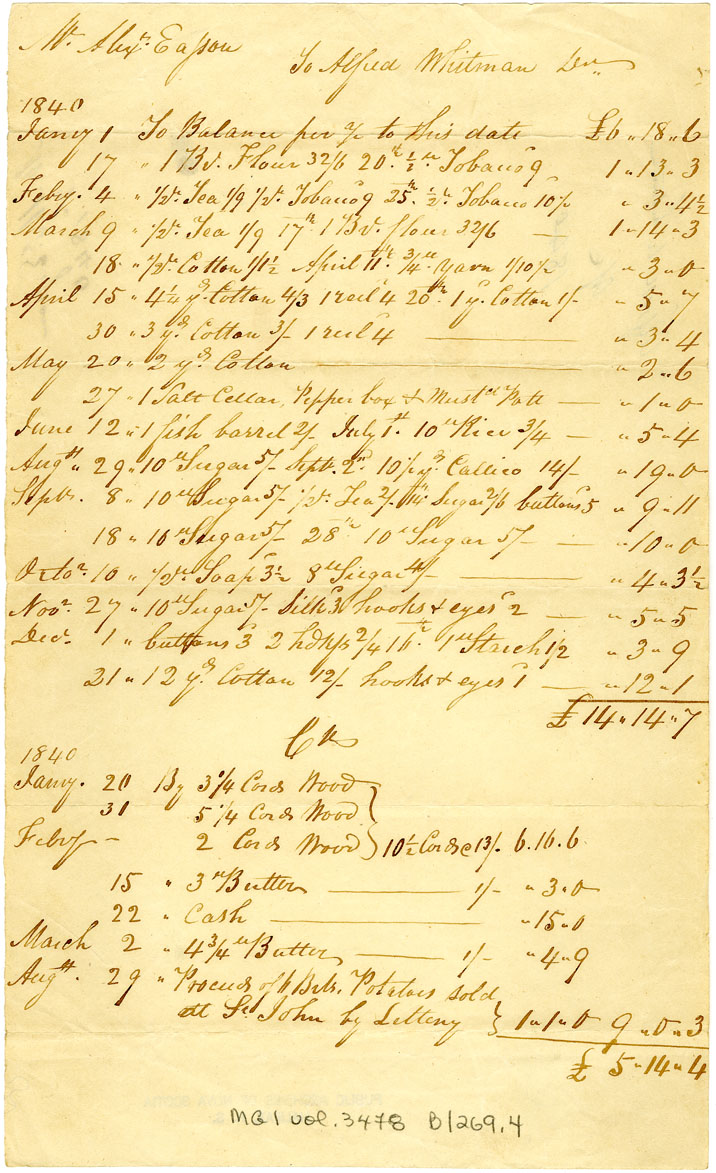 Mr. Alexr. Easson
To Alfred Whitman Dr.
1840
Jany 1 To Balance per a/c to this date £6 " 18 " 6
17 " 1 Bl. Flour 32/6 20th 1/2 lb Tobaco 9 1 " 13 " 3
Feby. 4 " 1/2 lb. Tea 1/9 1/2 lb. Tobaco 9 25th 1/2 lb Tobaco 10 1/2 " 3 " 4 1/2
March 9 " 1/2 lb. Tea 1/9 17th 1 Bl. flour 32/6 — 1 " 14 " 3
18 " 1/2 lb. Cotton 1/1 1/2 April 11th 3/4 lb yarn 1/10 1/2 " 3 " 0
April 15 " 4 1/4 yd Cotton 4/3 1 reel 4 20th 1 y. Cotton 1/- " 5 " 7
30 " 3 yds Cotton 3/- 1 reel 4 — " 3 " 4
May 20 " 2 yds Cotton — " 2 " 6
27 " 1 Salt Cellar, Pepper box & Mustd Pott — " 1 " 0
June 12 " 1 fish barrel 2/- July 1st 10 lb Rice 3/4 — " 5 " 4
Augst 29 " 10 lb Sugar 5/- Sept. 2d 10 1/2 yds Callico 14/- " 19 " 0
Septr. 8 " 10 lb Sugar 5/- 1/2 lb. Tea 2/- 14th Sugar 2/6 buttons 5 " 9 " 11
18 " 10 lb Sugar 5/- 28th 10 lb Sugar 5/- — " 10 " 0
Octor 10 " 1/2 lb Soap 3 1/2 8 lb Sugar 4/- — " 4 " 3 1/2
Novr 27 " 10 lb Sugar 5/- Silk 3 hooks & eyes 2 — " 5 " 5
Decr. 1 " buttons 3 2 hdkfs 2/4 16th 1 lb Starch 1/2 " 3 " 9
21 " 12 yds Cotton 12/- hooks & eyes 1 — " 12 " 1
£ 14 " 14 " 7
Cr
1840
Jany. 20 By 3 1/4 Cords Wood
31 5 1/4 Cords Wood
Feby — 2 Cords Wood } 10 1/2 Cords @ 13/- 6.16.6
15 " 3 lb Butter — 1/- " 3 " 0
22 " Cash — " 15 " 0
March 2 " 4 3/4 lb Butter — 1/- " 4 " 9
Augst. 29 " Proceeds of 6 Bals. Potatoes sold
at St. John by Letteny } 1 " 1 " 0 9 " 0 " 3
£ 5 " 14 " 4
MG 1 vol. 3478 B/269.4